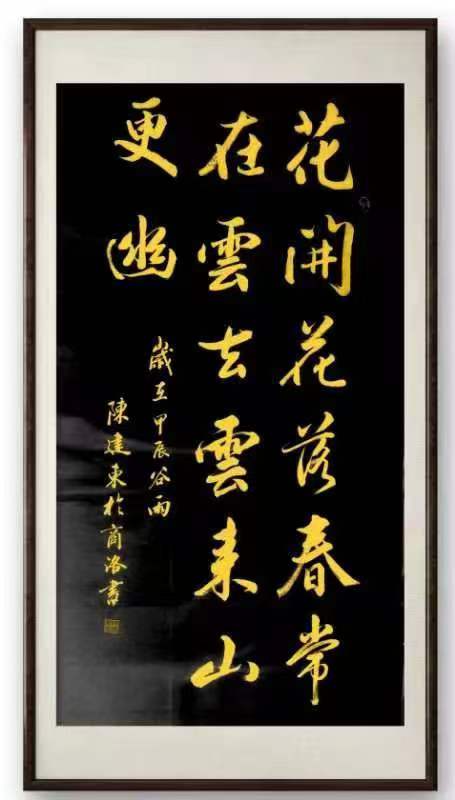 花開花落春常
在雲去雲來山
更幽
歲在甲辰谷雨
陳建東於商洛書